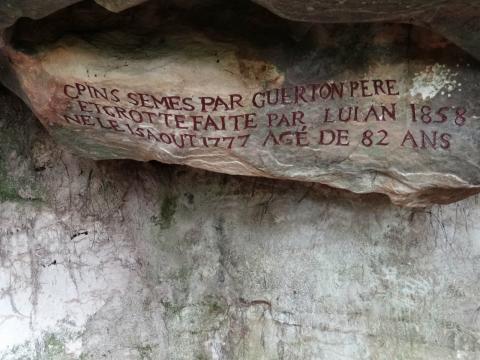 CPINS SEMES PAR GUERTON PERE
ET GROTTE FAITE PAR LUI AN 1858
NE LE 15 AOUT 1777 AGÉ DE 82 ANS